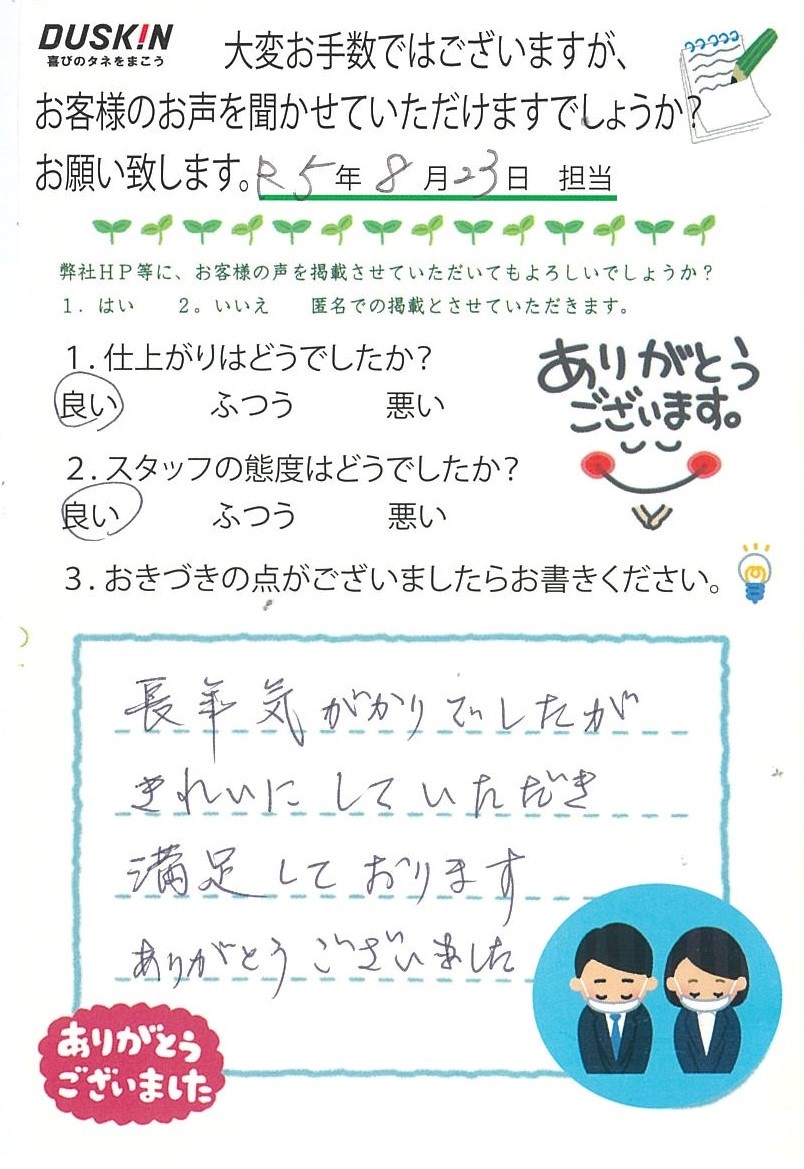 DUSK!N
喜びのタネをまこう
大変お手数ではございますが、
お客様のお声を聞かせていただけますでしょうか?
お願い致します。R5年8月23日 担当
弊社HP等に、お客様の声を掲載させていただいてもよろしいでしょうか?
1. はい 2。いいえ 匿名での掲載とさせていただきます。
1. 仕上がりはどうでしたか?
良い ふつう 悪い
ありがとう
ございます。
2. スタッフの態度はどうでしたか?
良い ふつう 悪い
3. おきづきの点がございましたらお書きください。
長年気がかりでしたが
きれいにしていただき
満足しております
ありがとうございました
ありがとう
ございました